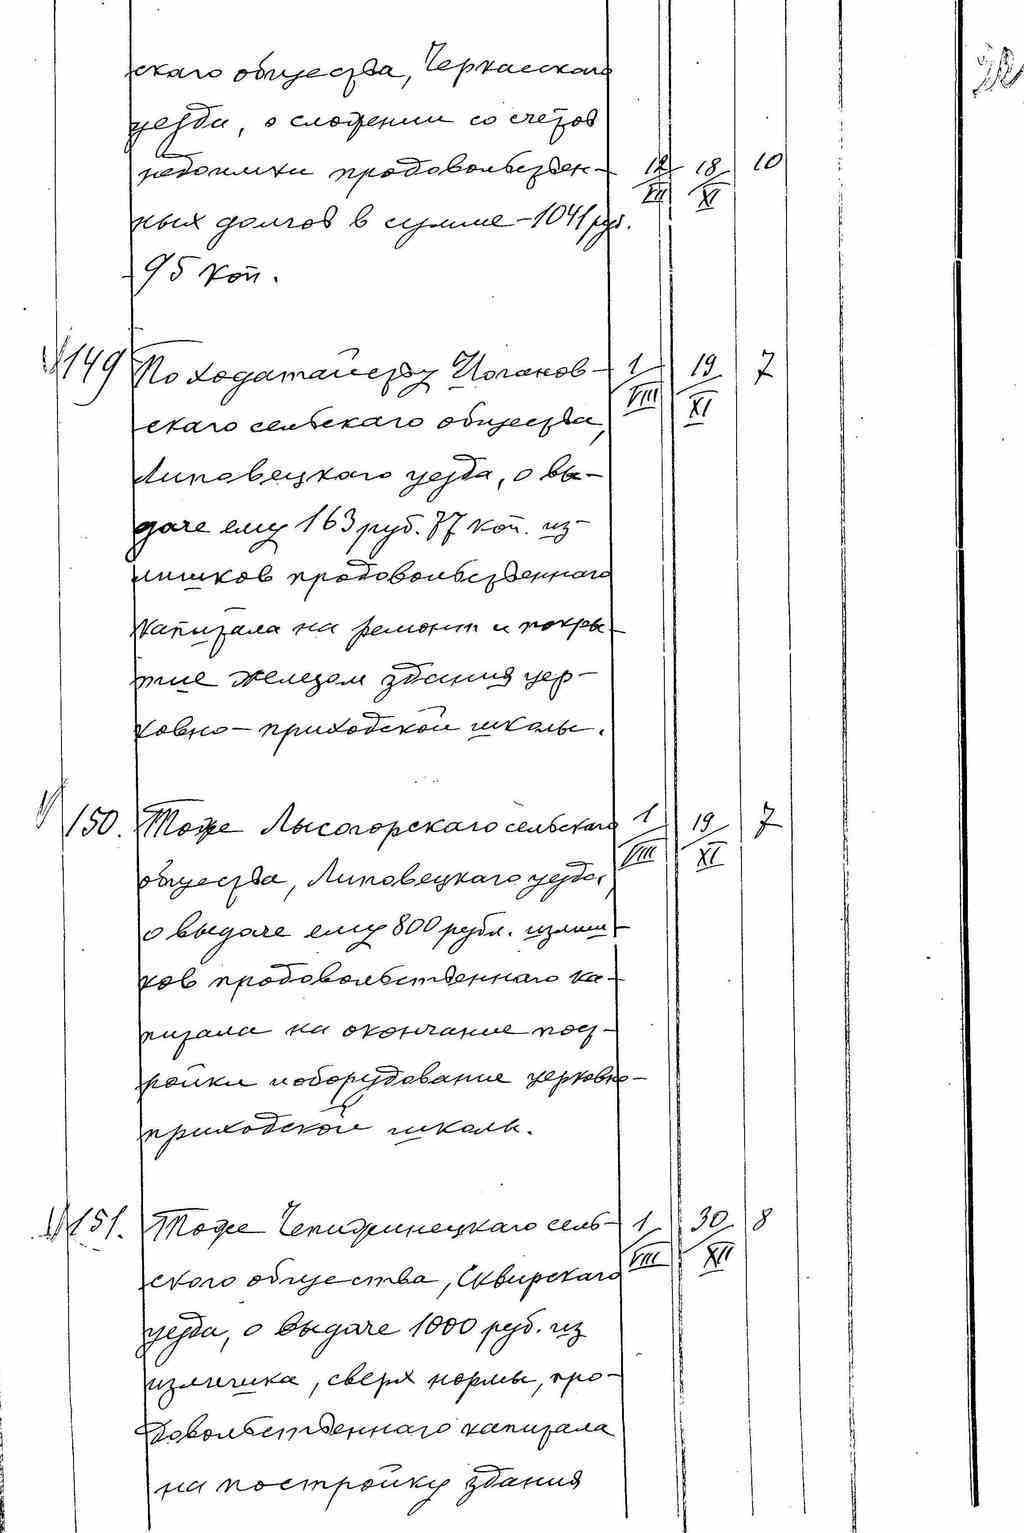 скаго общества, Черкасскаго
уезда, о сложении со счетов
недоимки продовольствен- 12/VII 18/XI 10
ных долгов в сумме - 1041 руб.
95 коп.
149 По ходатайству Цогановв- 1/VIII 19/XI 7
скаго сельскаго общества,
Липовецкаго уезда, о вы-
даче ему 163 руб. 77 коп. из-
лишков продовольственнаго
капитала на ремонт и покры-
тие железом здания цер-
ковно-приходской школы.
150. Тоже Лысогорскаго сельскаго 1/VIII 19/XI 7
общества, Липовецкаго уезда,
о выдаче ему 800 рубл. излиш-
ков продовольственнаго ка-
питала на окончание пост-
ройки и оборудование церковно-
приходской школы.
151. Тоже Чепижинецкаго сель- 1/VIII 30/XII 8
ского общества, Сквирскаго
уезда, о выдаче 1000 руб. из
излишка, сверх нормы, про-
довольственнаго капитала
на постройку здания